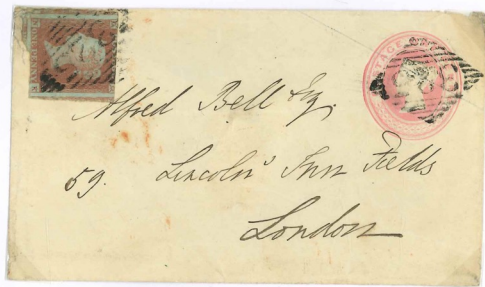 POSTAGE
Alfred Bell Esq.
59. Lincoln's Inn Fields
London